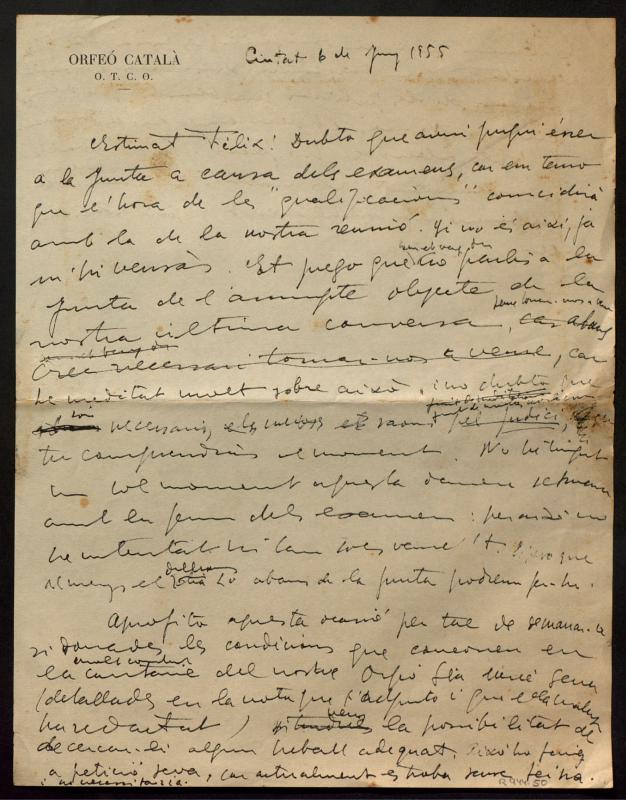 ORFEÓ CATALÀ
O. T. C. O.
Ciutat 6 de Juny 1955
Estimat Fèlix: Dubto que avui pugui ésser
a la Junta a causa dels examens, car em temo
que l'hora de les "qualificacions" coincidirà
amb la de la nostra reunió. Si no és així, ja
m'hi veuràs. Et prego que no parlis a la
Junta de l'assumpte objecte de la
nostra última conversa, car abans
crec necessari tornar-nos a veure, car
he meditat molt sobre això, i no dubto que
són necessaris, els raons judici,
tu comprendràs el moment. No he tingut
un sol moment aquesta darrera setmana
amb la feina dels examens: per això no
he intentat ni tan sols veure't. Espero que
almenys el dia 20 abans de la Junta podrem parlar.
Aprofito aquesta ocasió per tal de demanar-te
si donades les condicions que concorren en
la cantaire del nostre Orfeó Sta
(detallades en la nota que t'adjunto i que ella mateixa
ha redactat) veus la possibilitat de
de cercar-li algun treball adequat. Això ho faries
a petició seva, car actualment es troba sense feina.
i necessitada.
50